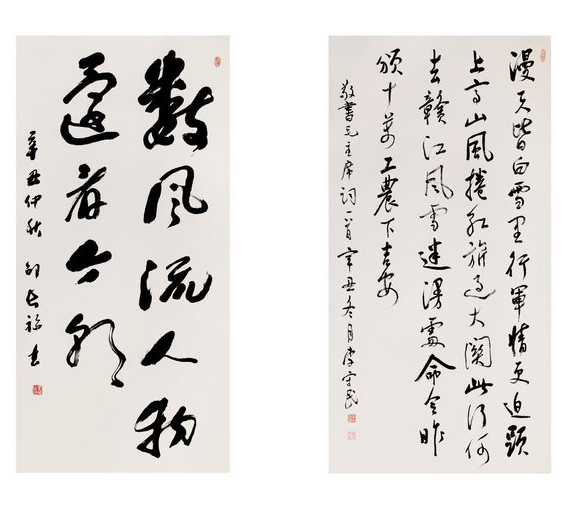 數風流人物
還看今朝
辛丑仲秋 書
漫天皆白雪里行軍情更迫頭
上高山風捲紅旗過大關此行何
去贛江風雪迷漫處命令昨
頒十萬工農下吉安
敬書毛主席詞一首辛丑冬月李守民